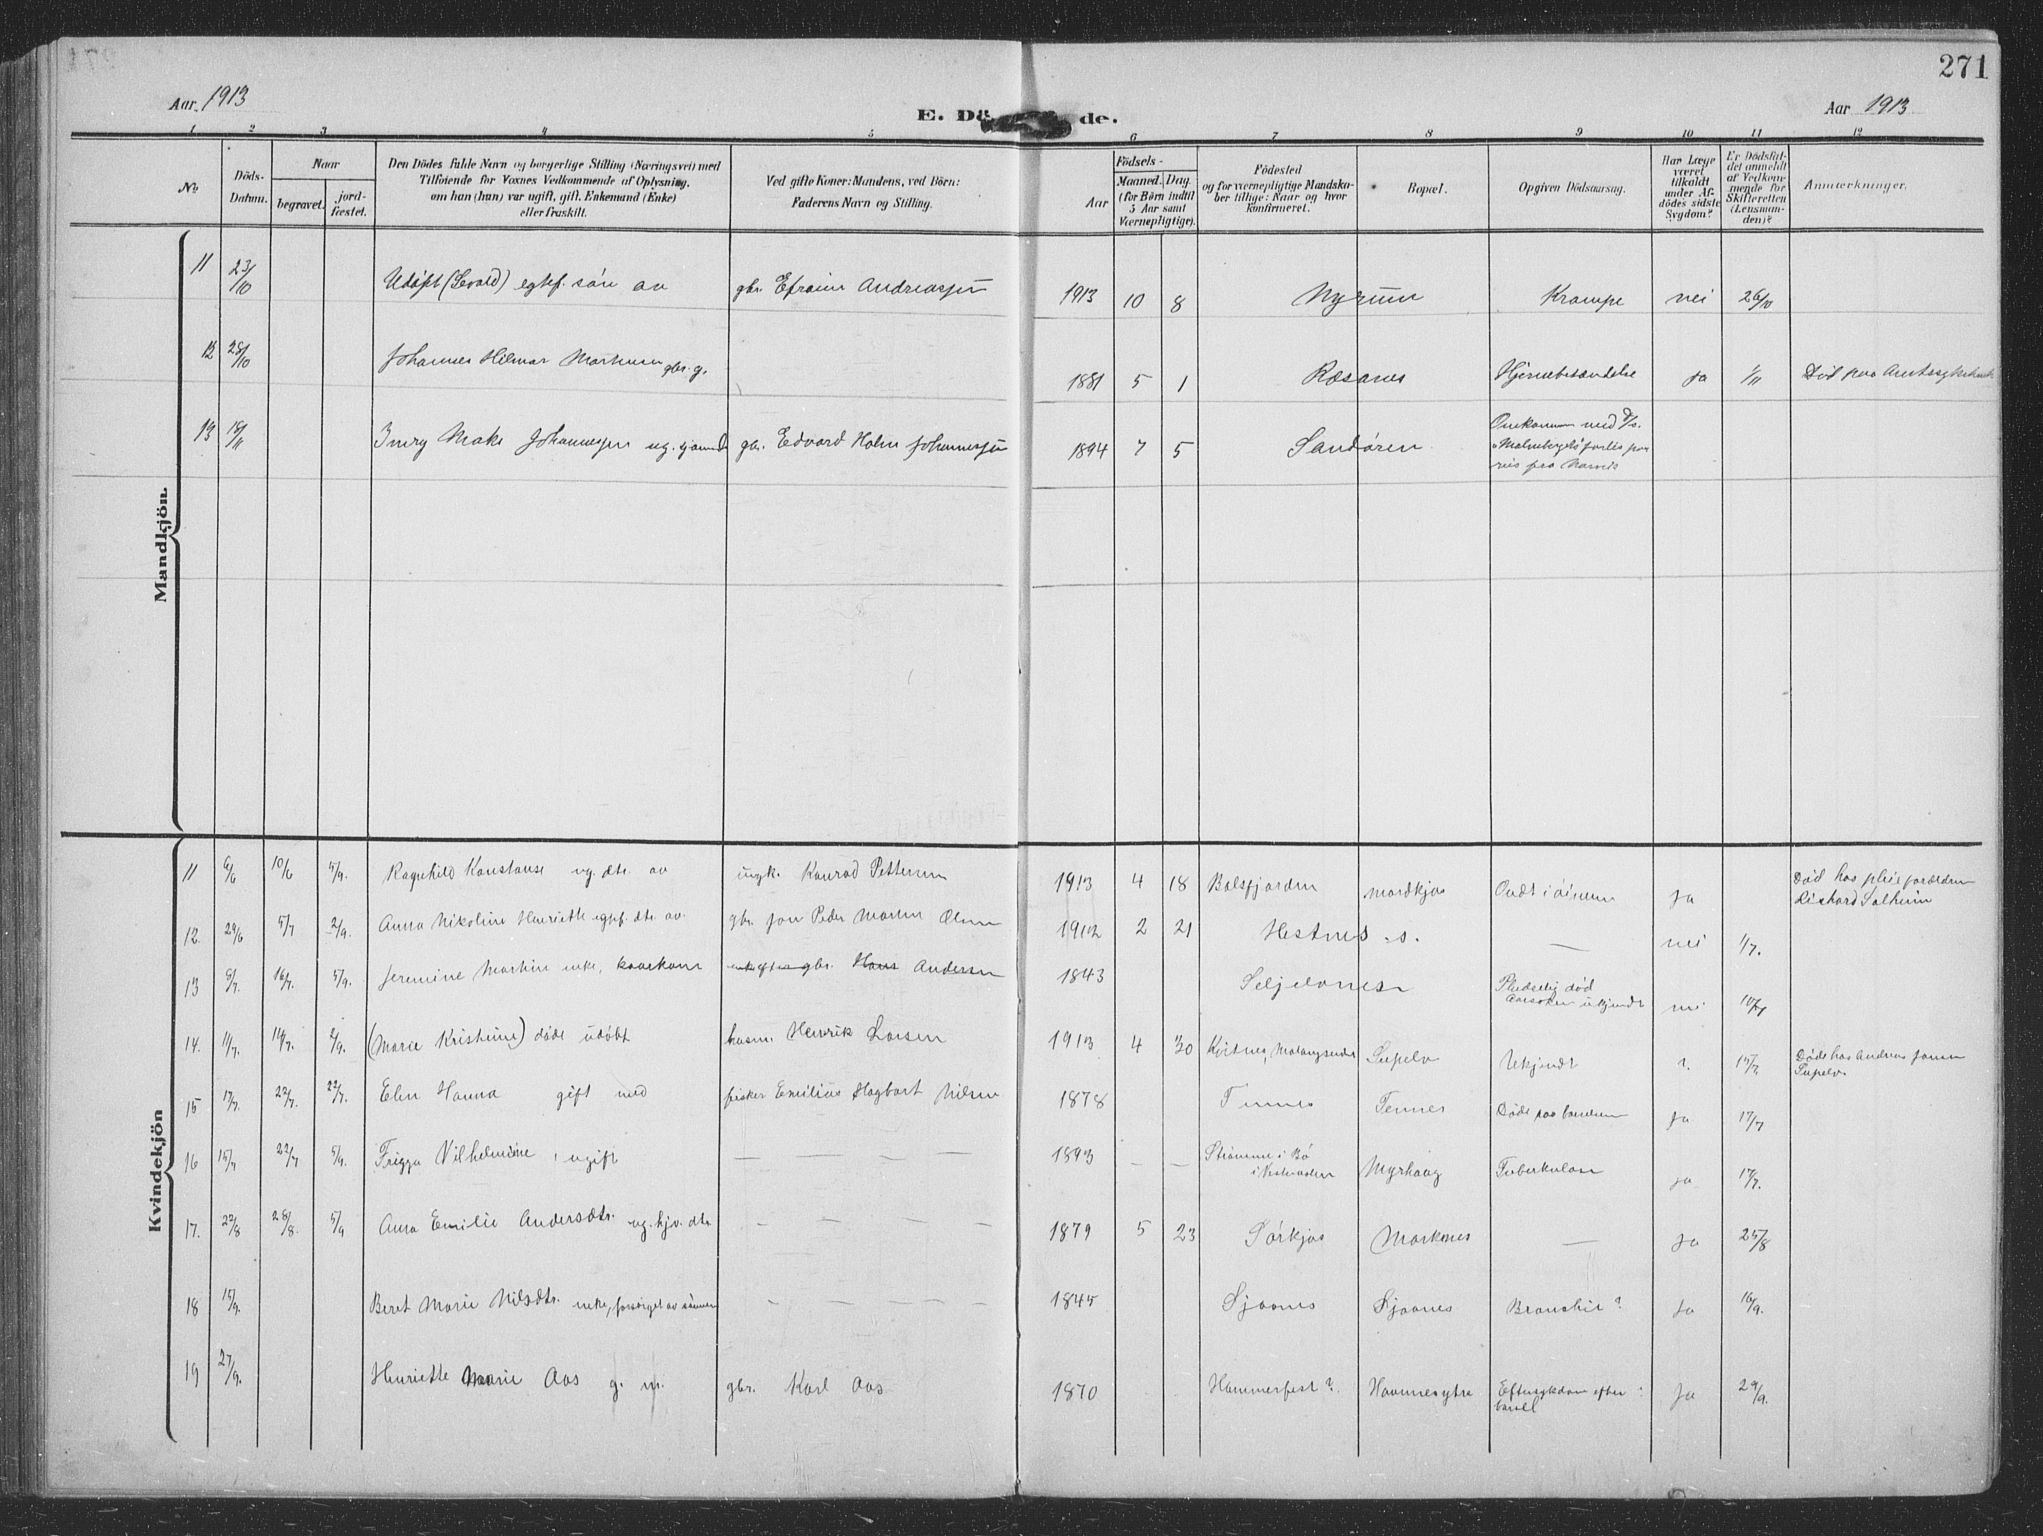 271
Aar 1913
E. Dö de.
Aar 1913
1 2 3 4 5 6 7 8 9 10 11 12
No
Döds-
Datum.
Naar
begravet.
jord-
fæstet.
Den Dödes fulde Navn og borgerlige Stilling (Næringsvei) med
Tilföiende for Voxnes Vedkommende af Oplysning,
om han (hun) var ugift, gift, Enkemand (Enke)
eller fraskilt.
Ved gifte Koner: Mandens, ved Börn:
Faderens Navn og Stilling.
Födsels-
Aar
Maaned. Dag
(for Börn indtil
5 Aar samt
Værnepligtige).
Födested
og for værnepligtige Mandska-
ber tillige: Naar og hvor
konfirmeret.
Bopæl.
Opgiven Dödsaarsag.
Har Læge
været
tilkaldt
under Af-
dödes sidste
Sygdom?
Er Dödsfal-
det anmeldt
af Vedkom-
mende for
Skifteretten
(Lensman-
den)?
Anmærkninger.
Mandkjön.
11 23/10 Udøpt (Sevald) egtef. søn av gbr. Efraim Andreassen 1913 10 8 Nyrum Krampe nei 26/10
12 28/10 Johannes Hilmar Martinsen gbr. g. 1881 5 1 Ræsanes Hjernebetændelse ja 1/11 Død paa Amtssykehuset
13 18/11 Johannessen ug. gbr. Edvard Holm Johannessen 1894 7 5 Sandøren Omkommen med D/S.
"Malmberget" forlis paa
reis fra Narvik
Kvindekjön
11 6/6 10/6 5/9. Ragnhild Konstanse ug. dtr. av ungk. Konrad Pettersen 1913 4 18 Balsfjorden Mortkjos Ondt i ja Død hos pleieforældrene
Rikhard Solheim
12. 29/6 5/7 2/9. Anna Nikoline Henriette egtef. dtr. av gbr. Jon Peder Martin Olsen 1912 2 21 Hestnes . s. — nei 1/7.
13 8/7. 16/7. 5/9. Jeremine Martine enke, enke efter gbr. Hans Andersen 1843 Seljelvnes Pludselig død
aarsaken ukjendt nei 10/7
14. 11/7. 14/7. 2/9. (Marie Kristine) døde udøbt husm. Henrik Larsen 1913 4 30 Kvitnes, Malangseidet Sagelv Ukjendt ?. 15/7. Døde hos Andreas Jensen
Sagelv.
15 17/7. 22/7. 22/7. Elen Hanna gift med fisker Emilius Hagbart Nilsen 1878 Tennes Tennes Døde paa barselseng ja 17/7
16 15/7 22/7 5/9. Frigga Vilhelmine, ugift — — — — 1893 — — Strømme i Bø
i Vesteraalen Myrhaug Tuberkulose ja 17/7.
17. 22/8 28/8. 5/9 Anna Emilie Andersdtr. ug. gbr. dtr. — — — — 1879 5 23 Sørkjos Marknes — Ja 25/8
18 15/9. Beret Marie Nilsdtr. enke, forsørget av sønnen — — — — 1845 Sjaanes Sjaanes Bronchit? Ja 16/9.
19 27/9. Henriette Marie Aas g. m. gbr. Karl Aas 1870 Hammerfest? Havnnesytre Eftersykdom efter ?
barsel Ja 29/9.